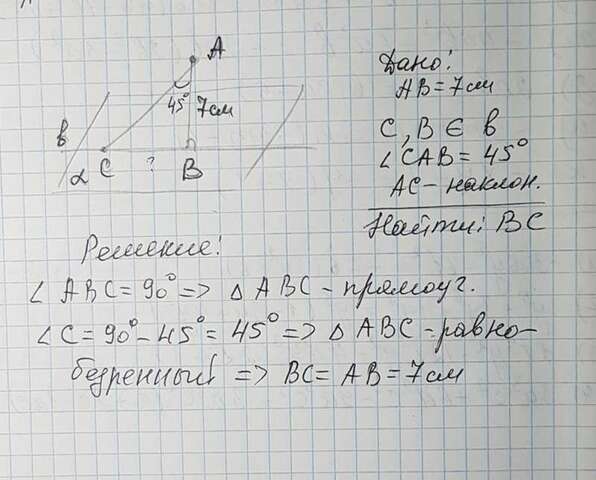 A
45° 7см
в
α C ? B
Дано:
AB = 7см
C, B ∈ в
∠CAB = 45°
AC – наклон.
Найти: BC
Решение:
∠ ABC = 90° => △ ABC – прямоуг.
∠ C = 90° – 45° = 45° => △ ABC – равно-
бедренный => BC = AB = 7см